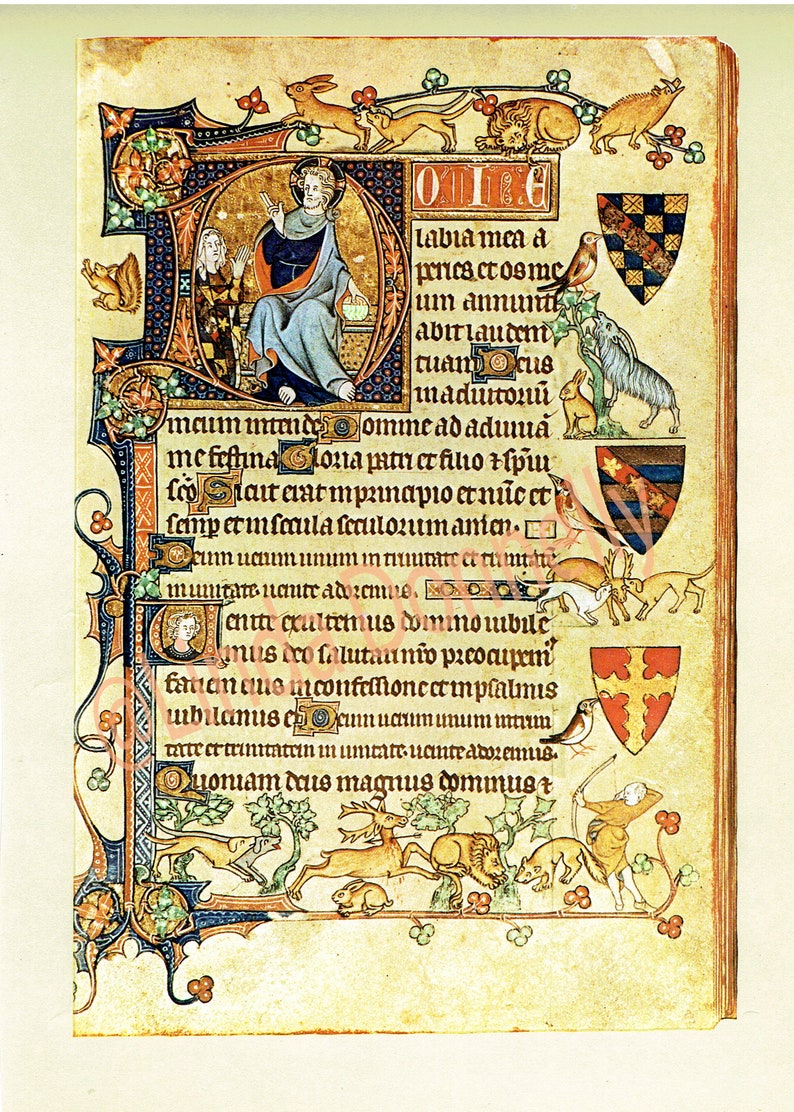 DOIE
labia mea a
peries et os me
um annunti
abit laudem
tuam Deus
in adiutoriū
meum intende Domine ad adiuuā
me festina Gloria patri et filio ⁊ spūi
scō Sicut erat in principio et nūc et
semp et in secula seculorum amen.
Deum uerum unum in trinitate et trinitatē
in unitate. uenite adoremus.
Uenite exultemus domino iubile
mus deo salutari nr̄o preocupem⁹
faciem eius in confessione et in psalmis
iubilemus ei Deum uerum unum in trini
tate et trinitatem in unitate. uenite adoremus.
Quoniam deus magnus dominus ⁊
©Linda Donnelly